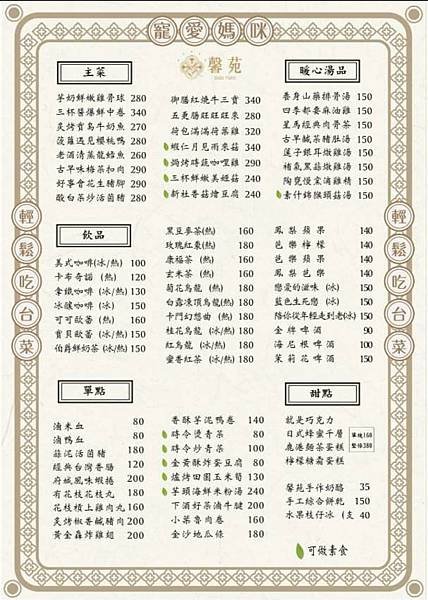 寵愛媽咪
馨苑
輕鬆吃台菜
輕鬆吃台菜
主菜
芋奶鮮嫩雞骨球 280
三杯醬爆鮮中卷 340
炙烤寶島午奶魚 270
菠蘿遇見櫻桃鴨 280
老酒清蒸龍鱈魚 260
古早味梅菜扣肉 290
好事會花生豬腳 290
酸白菜炒活菌豬 280
御膳紅燒牛三寶 340
五更腸旺旺旺來 280
荷包滿滿荷葉雞 320
蝦仁月見雨來菇 340
焗烤蜂蔬咖哩雞 290
三杯鮮嫩美經菇 240
新社香菇燴豆腐 240
暖心湯品
養身山藥排骨湯 150
四季都要麻油雞 150
星馬經典肉骨茶 150
古早鹹菜豬肚湯 150
蓮子銀耳燉雞湯 150
補氣黑蒜燉雞湯 150
陶甕慢窯滴雞精 150
素什錦猴頭菇湯 150
飲品
美式咖啡(冰/熱) 100
卡布奇諾 (熱) 120
拿鐵咖啡 (冰/熱) 130
冰釀咖啡 (冰) 150
可可歐蕾 (熱) 160
寶貝歐蕾 (冰/熱) 150
伯爵鮮奶茶 (冰/熱) 150
黑豆麥茶(熱) 160
玫瑰紅棗(熱) 180
康福茶 (熱) 160
玄米茶 (熱) 160
菊花烏龍 (熱) 180
白露凍頂烏龍(熱) 180
卡門幻想曲 (熱) 180
桂花烏龍 (冰/熱) 180
紅烏龍 (冰/熱) 180
蜜香紅茶 (冰/熱) 180
鳳梨蘋果 140
芭樂檸檬 140
芭樂蘋果 140
鳳梨芭樂 140
戀愛的滋味 (冰) 150
藍色生死戀 (冰) 150
陪你從年輕走到老(冰) 150
金牌啤酒 90
海尼根啤酒 100
茉莉花啤酒 150
單點
滷米血 80
滷鴨血 80
蒜泥活菌豬 180
經典台灣香腸 120
府城風味蝦捲 200
有花枝花枝丸 180
花枝槓上雞肉丸 160
炙烤椒香鹹豬肉 200
黃金轟炸雞翅 200
香酥芋泥鴨卷 140
時令燙青菜 80
時令炒青菜 100
金黃酥炸臭豆腐 80
爐烤田園玉米筍 130
芋頭海鮮米粉湯 240
下酒好菜滷牛腱 200
小菜魯肉卷 160
金沙地瓜條 180
甜點
就是巧克力
日式蜂蜜千層
鹿港麵茶蛋糕
檸檬糖霜蛋糕
單塊160
整條380
馨苑手作奶酪 35
手工綜合餅乾 150
水果枝仔冰 (支 40
可做素食